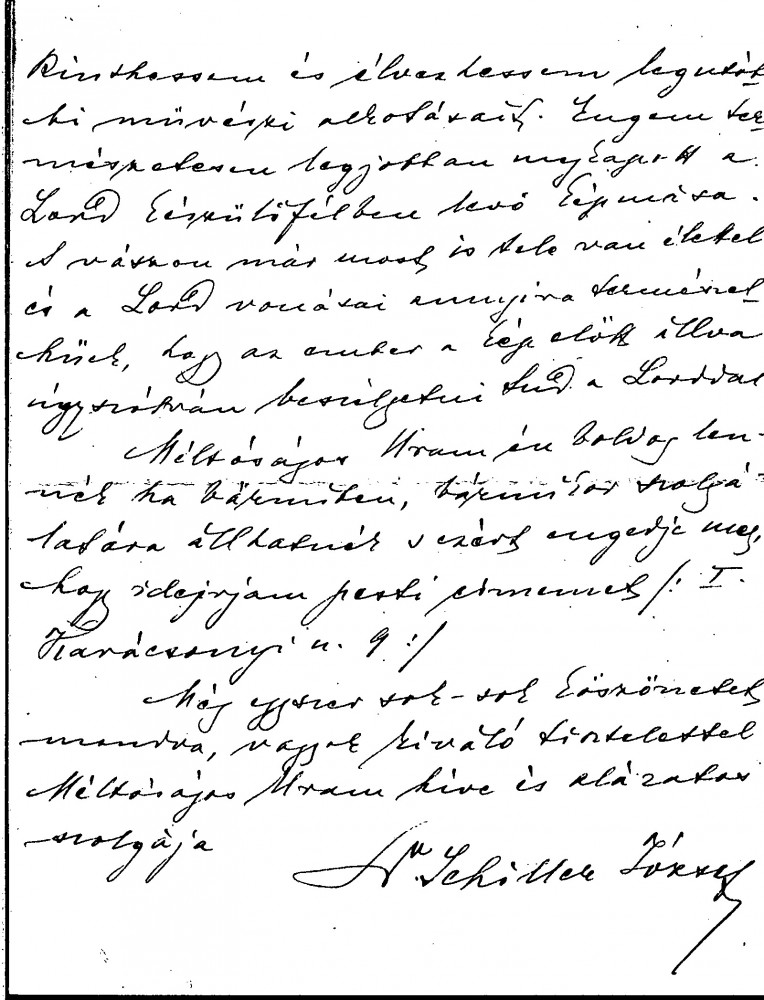 kinthessem és élvezhessem legutób-
bi müvészi alkotásait. Engem ter-
mészetesen legjobban megkapott a
Lord készülőfélben levő képmása.
A vászon már most is tele van élettel
és a Lord vonásai annyira természet-
hűek, hogy az ember a kép előtt állva
úgyszólván beszélgetni tud a Lorddal
Méltóságos Uram én boldog len-
nék ha bármiben, bármikor szolgá-
latára állhatnék s ezért engedje meg,
hogy idejrjam pesti címemet /: I.
Karácsonyi u. 9 :/
Még egyszer sok-sok köszönetet
mondva, vagyok kiváló tisztelettel
Méltóságos Uram híve és alázatos
szolgája
Dr Schiller József